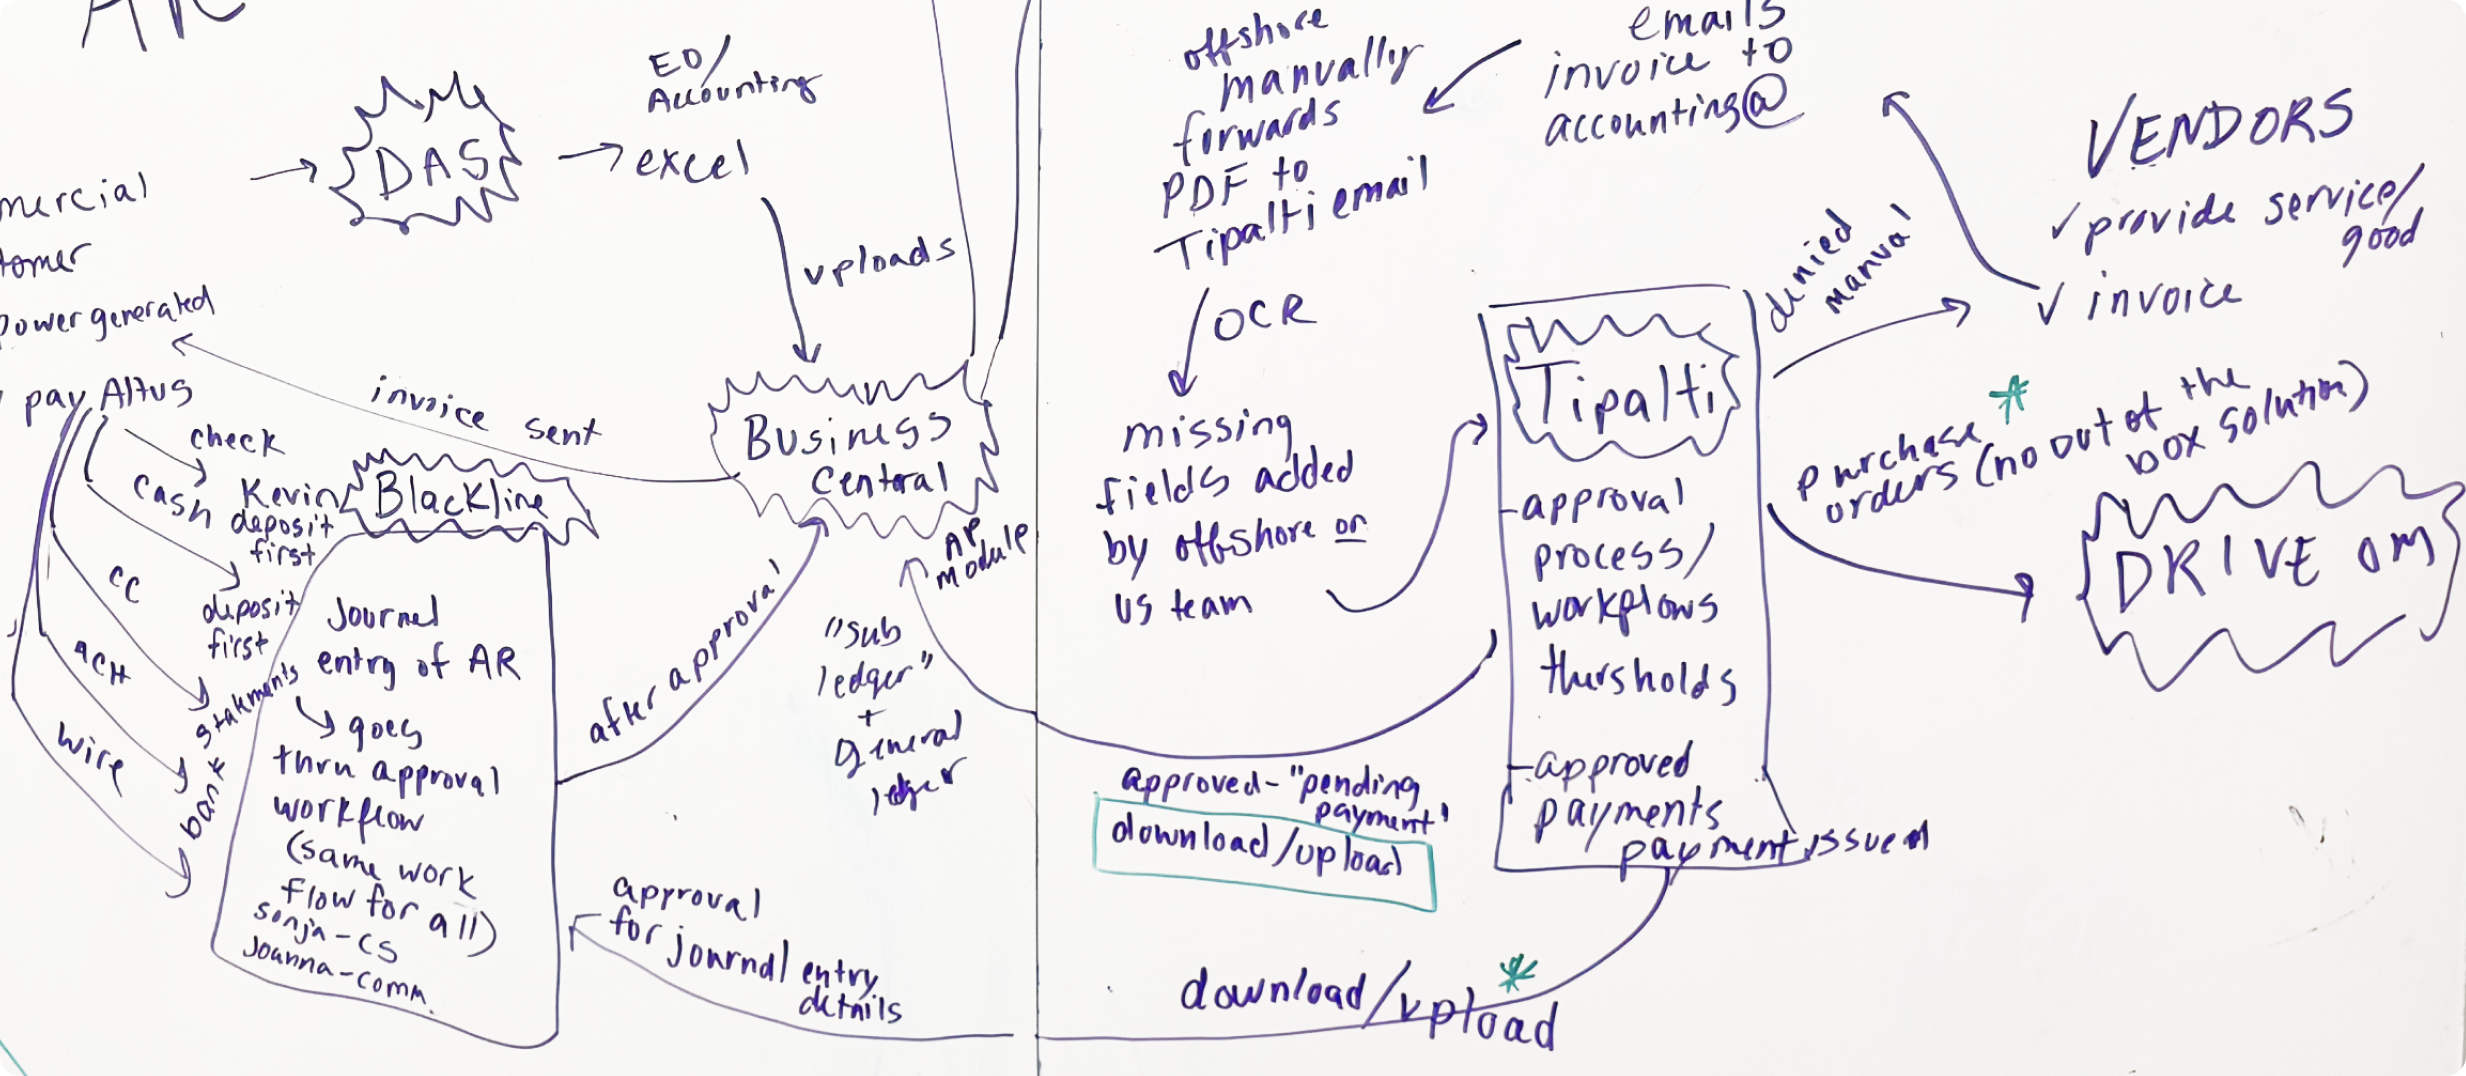 AR
mercial
tomer
power generated
pay Altus
check
cash
Kevin
deposit
first
deposit
first
CC
ACH
wire
bank statements
DAS
EO/
Accounting
excel
uploads
invoice sent
Business
Central
AP
module
Blackline
Journal
entry of AR
goes
thru approval
workflow
(same work
flow for all)
sonja-CS
Joanna-comm.
after approval
"sub
ledger"
+
general
ledger
approval
for journal entry
details
offshore
manually
forwards
PDF to
Tipalti email
emails
invoice to
accounting@
OCR
missing
fields added
by offshore or
us team
Tipalti
-approval
process/
workflows
thursholds
-approved
payments
payment issued
approved-"pending
payment"
download/upload
download/upload *
VENDORS
✓ provide service/
good
✓ invoice
denied
manual
purchase *
orders (no out of the
box solution)
DRIVE OM